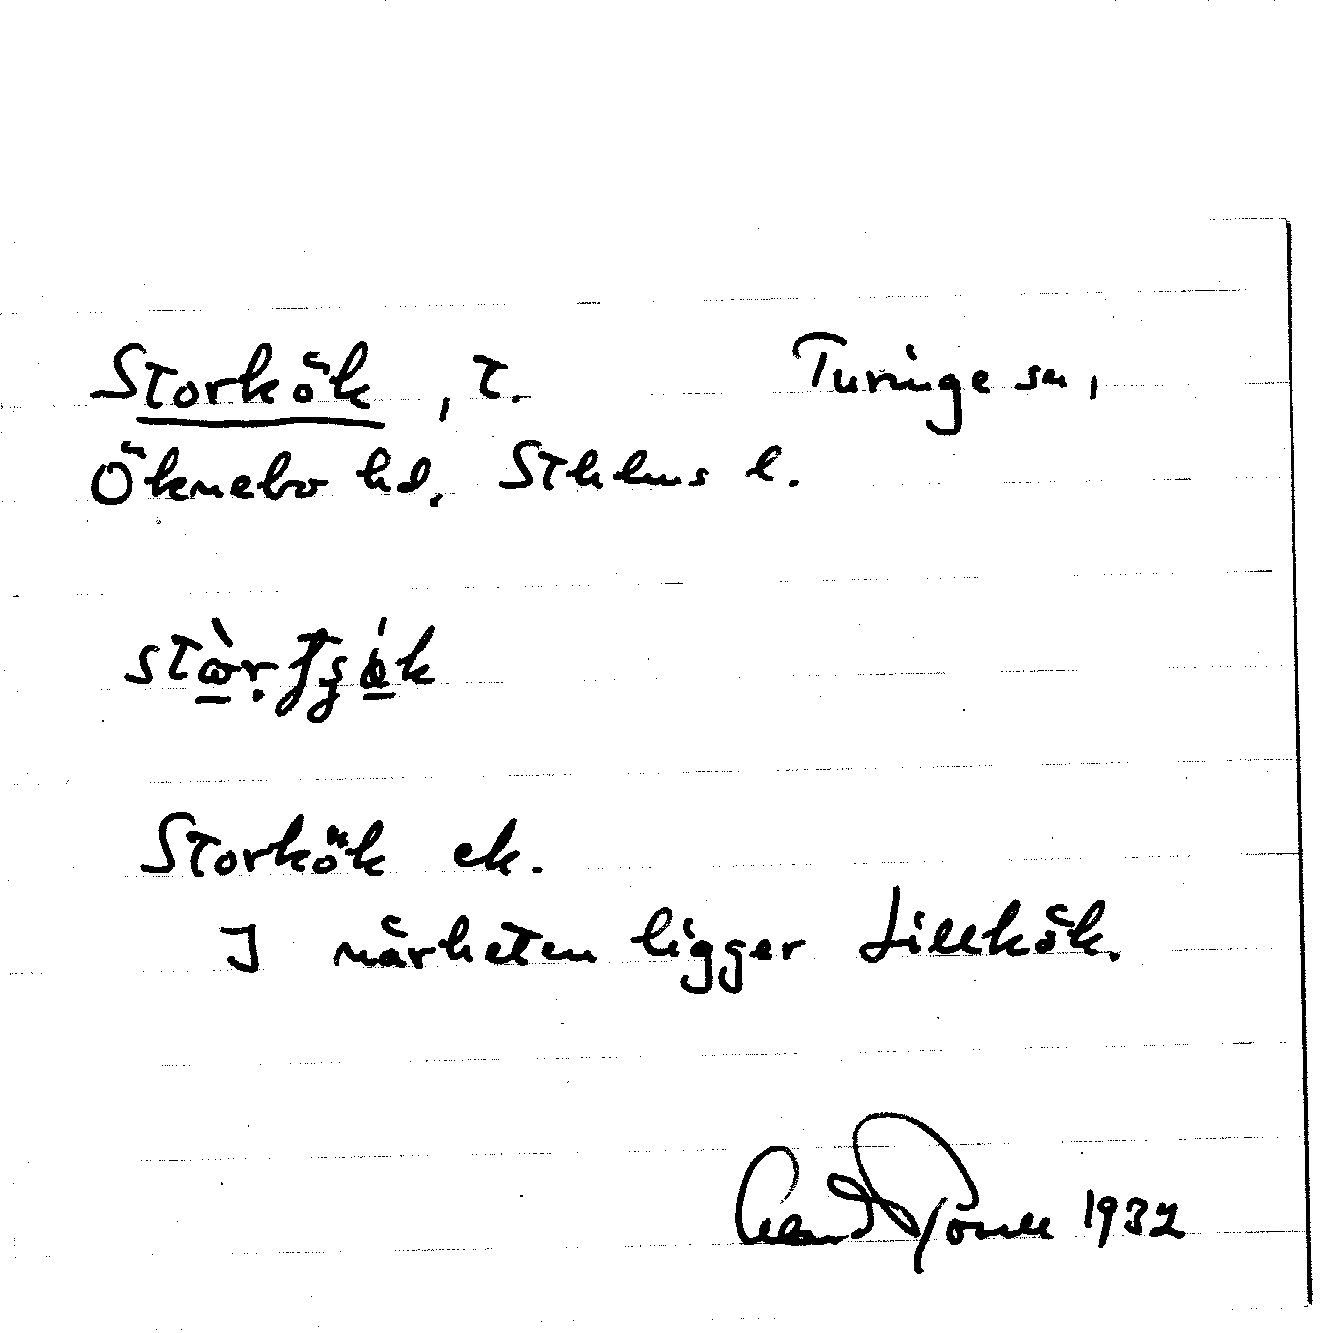 Storkök, t. Turinge sn,
Öknebo hd. Sthlms l.
Storkök ek.
I närheten ligger Lillkök.
1932